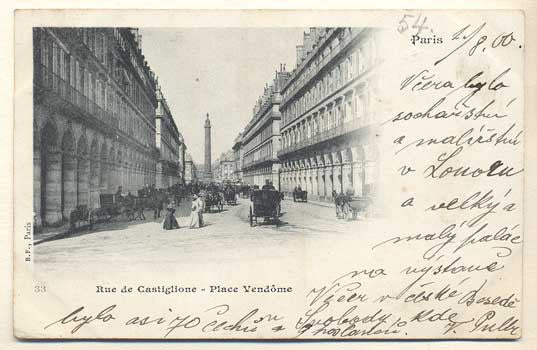 54.
Paris
1/8.00.
Včera bylo
sochařství
a malířství
v Louvru
a velký a
malý palác
na výstavě
B. F., Paris
33
Rue de Castiglione - Place Vendôme
Večer v české Besedě
Svobody kde
bylo asi 70 Čechův a